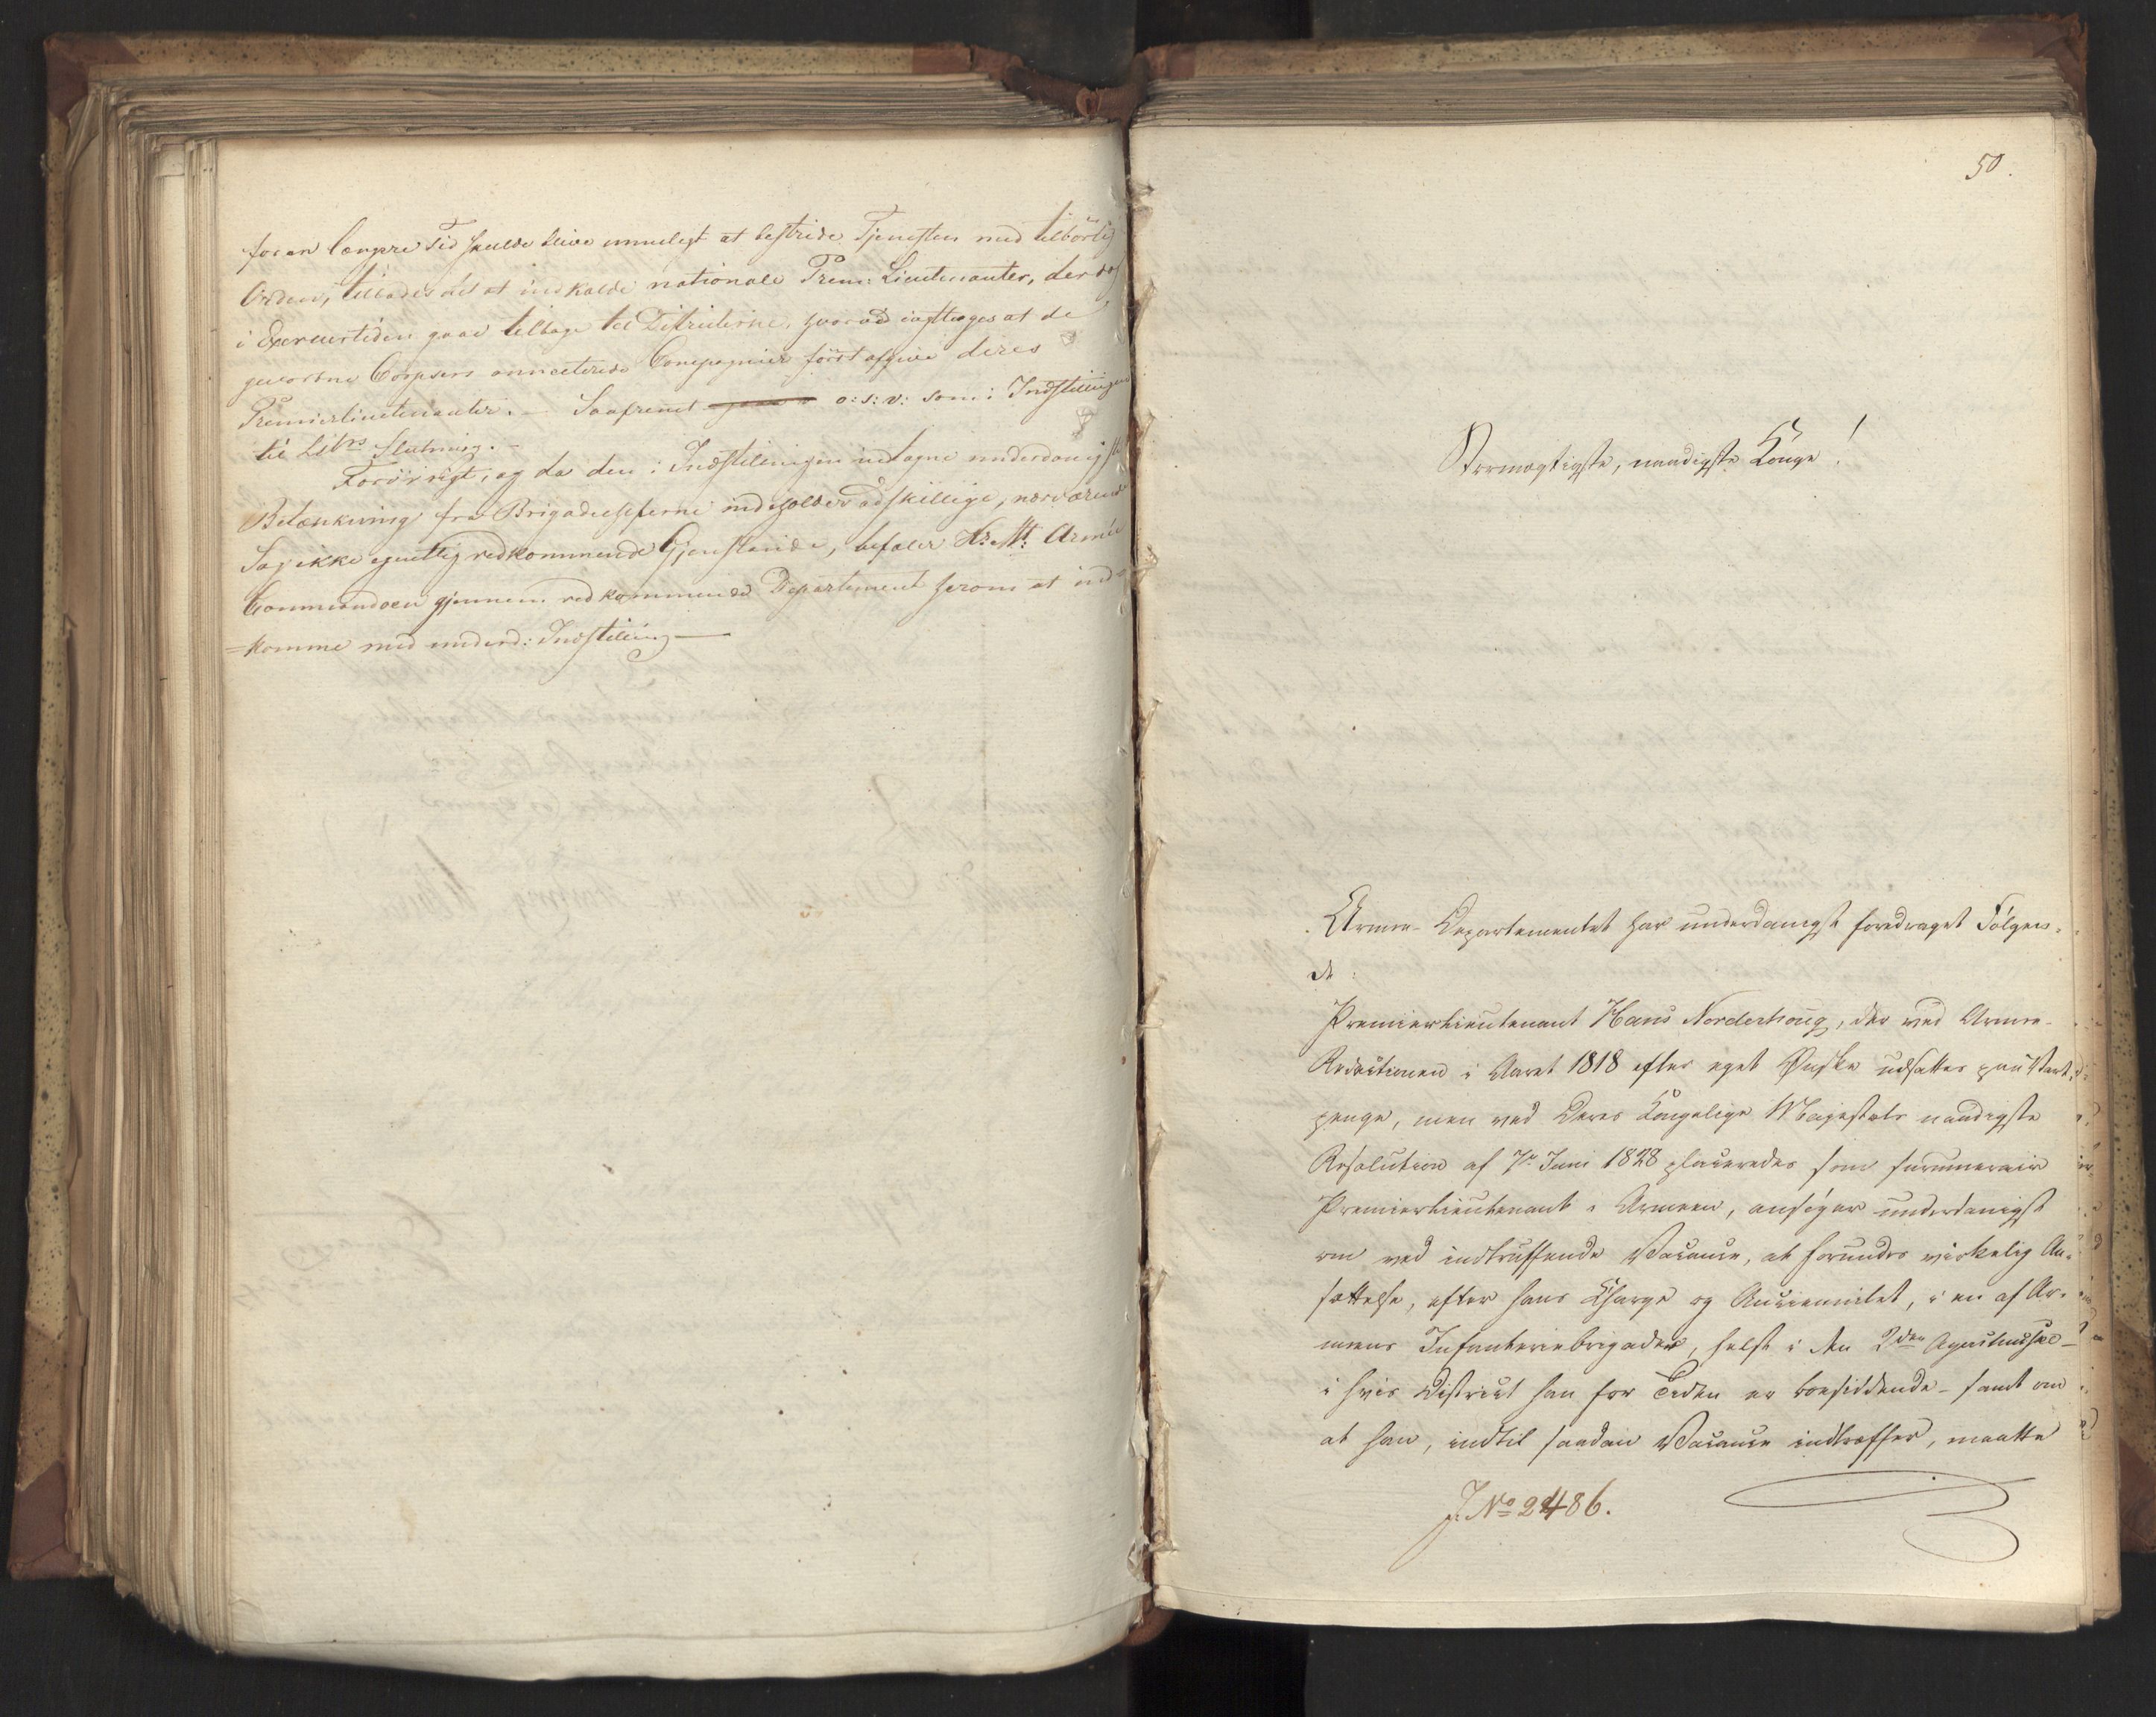 for en længere Tid skulde blive umueligt at bestride Tjenesten med tilbørlig
Orden, tillades det at indkalde nationale Prem: Lieutenanter, der dog
i Exerceertiden gaae tilbage til Districterne, hvorved iagttages at de
gevorbne Corpsers annecterede Compagnier først afgive deres
Premierlieutenanter. – Saafremt o: s: v: som i Indstillingen
til Slutning. –
Forøvrigt, og da den i Indstillingen indtagne underdanigste
Betænkning fra Brigadecheferne indeholder adskillige, nærværende
Sag ikke egentlig vedkommende Gjenstande, befaler Hs: Mt: Armee
Commandoen gjennem vedkommende Departement herom at ind=
=komme med underd: Indstilling —
50.
Stormægtigste, naadigste Konge!
Armee-Departementet har underdanigst foredraget Følgen=
de:
Premierlieutenant Hans Norderhoug, der ved Armee-
Reductionen i Aaret 1818 efter eget Ønske udsattes paa Vart=
penge, men ved Deres Kongelige Majestæts naadigste
Resolution af 7de Juni 1828 placeredes som surnumerair
Premierlieutenant i Armeen, ansøger underdanigst
om ved indtræffende Vacance, at forundes virkelig An=
sættelse, efter hans Charge og Anciennitet, i en af Ar=
meens Infanteriebrigader, helst i den 2den Agershusske –
i hvis District han for Tiden er boesiddende – samt om
at han, indtil saadan Vacance indtræffer, maatte
J. No 2486.